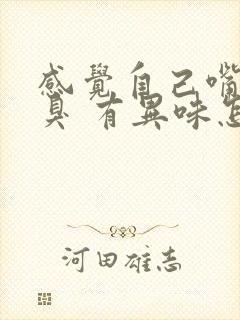 感覺自己嘴
臭 有異味怎
河田雄志